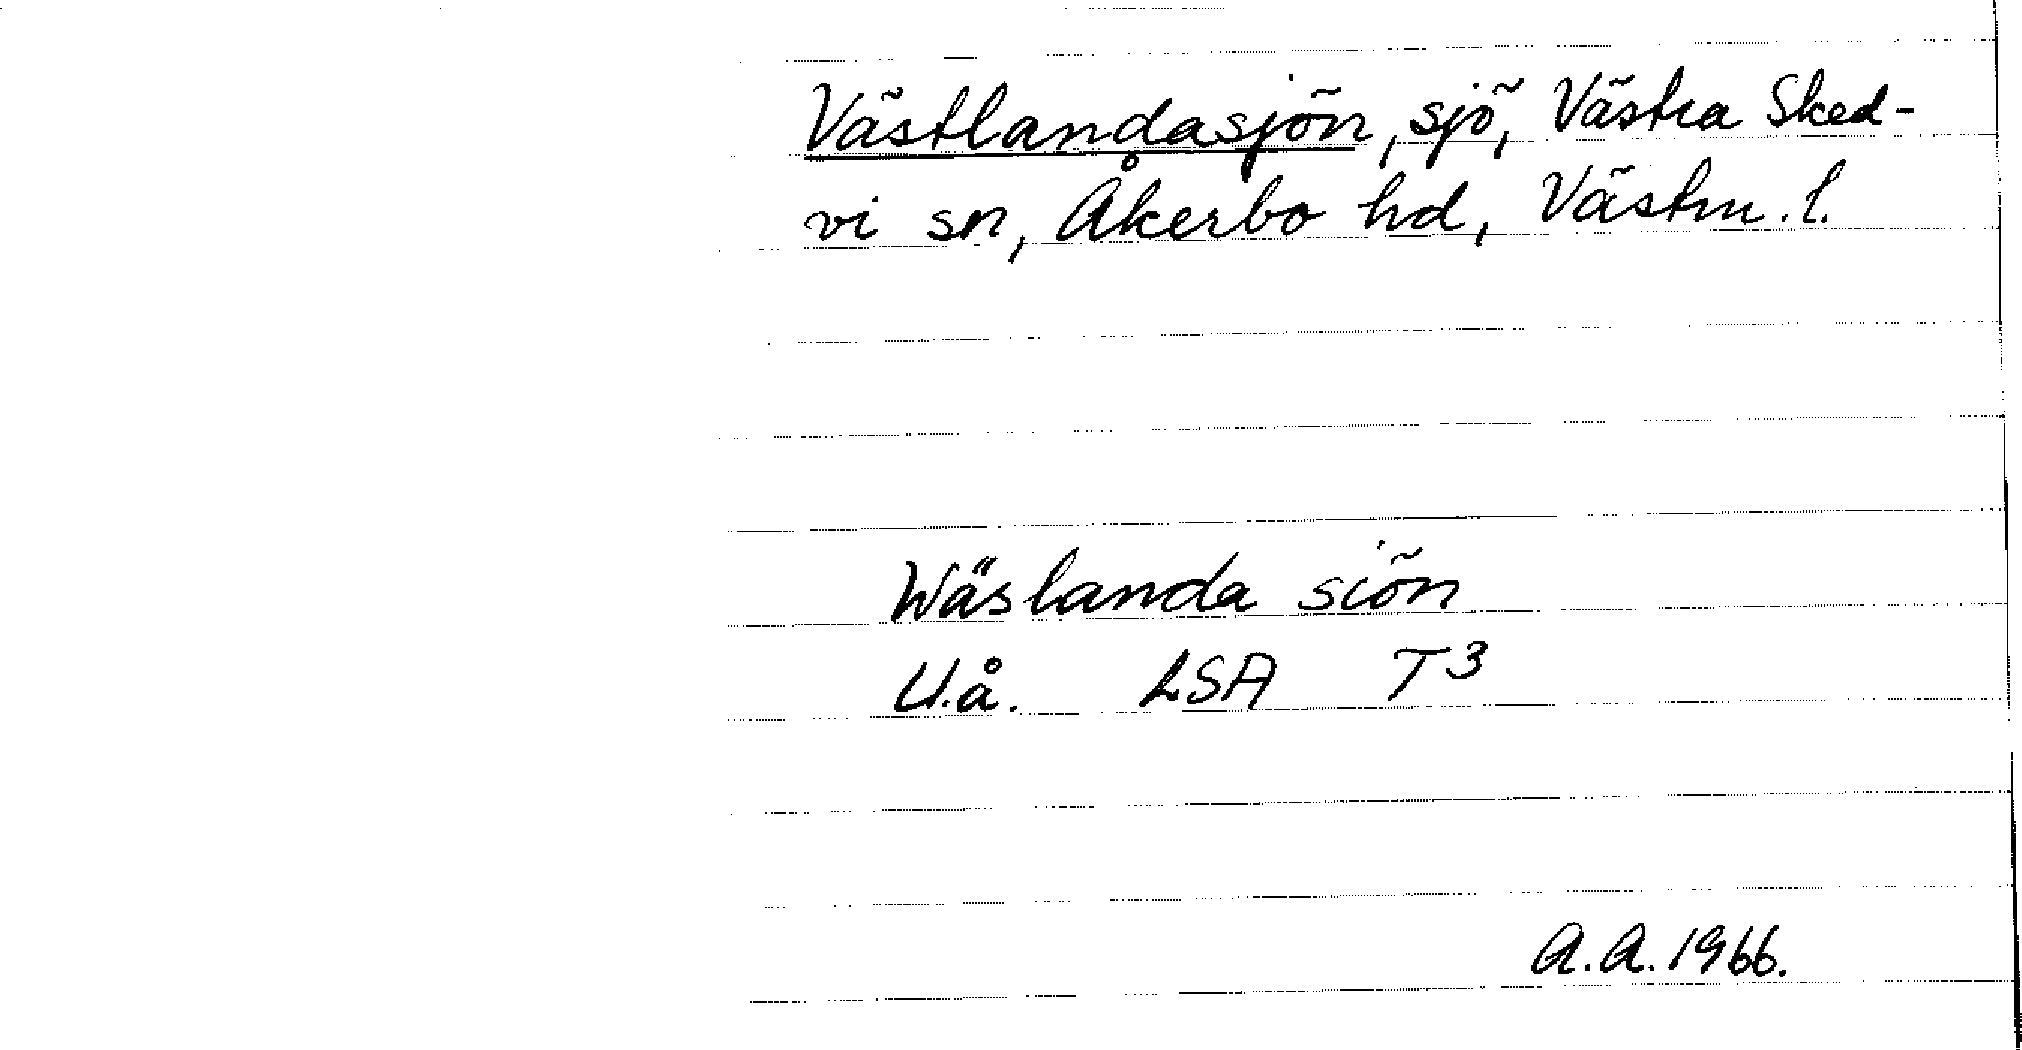 Västlandasjön, sjö, Västra Sked-
vi sn, Åkerbo hd, Västm. l.
Wäslanda siön
U.å. LSA T3
A.A. 1966.